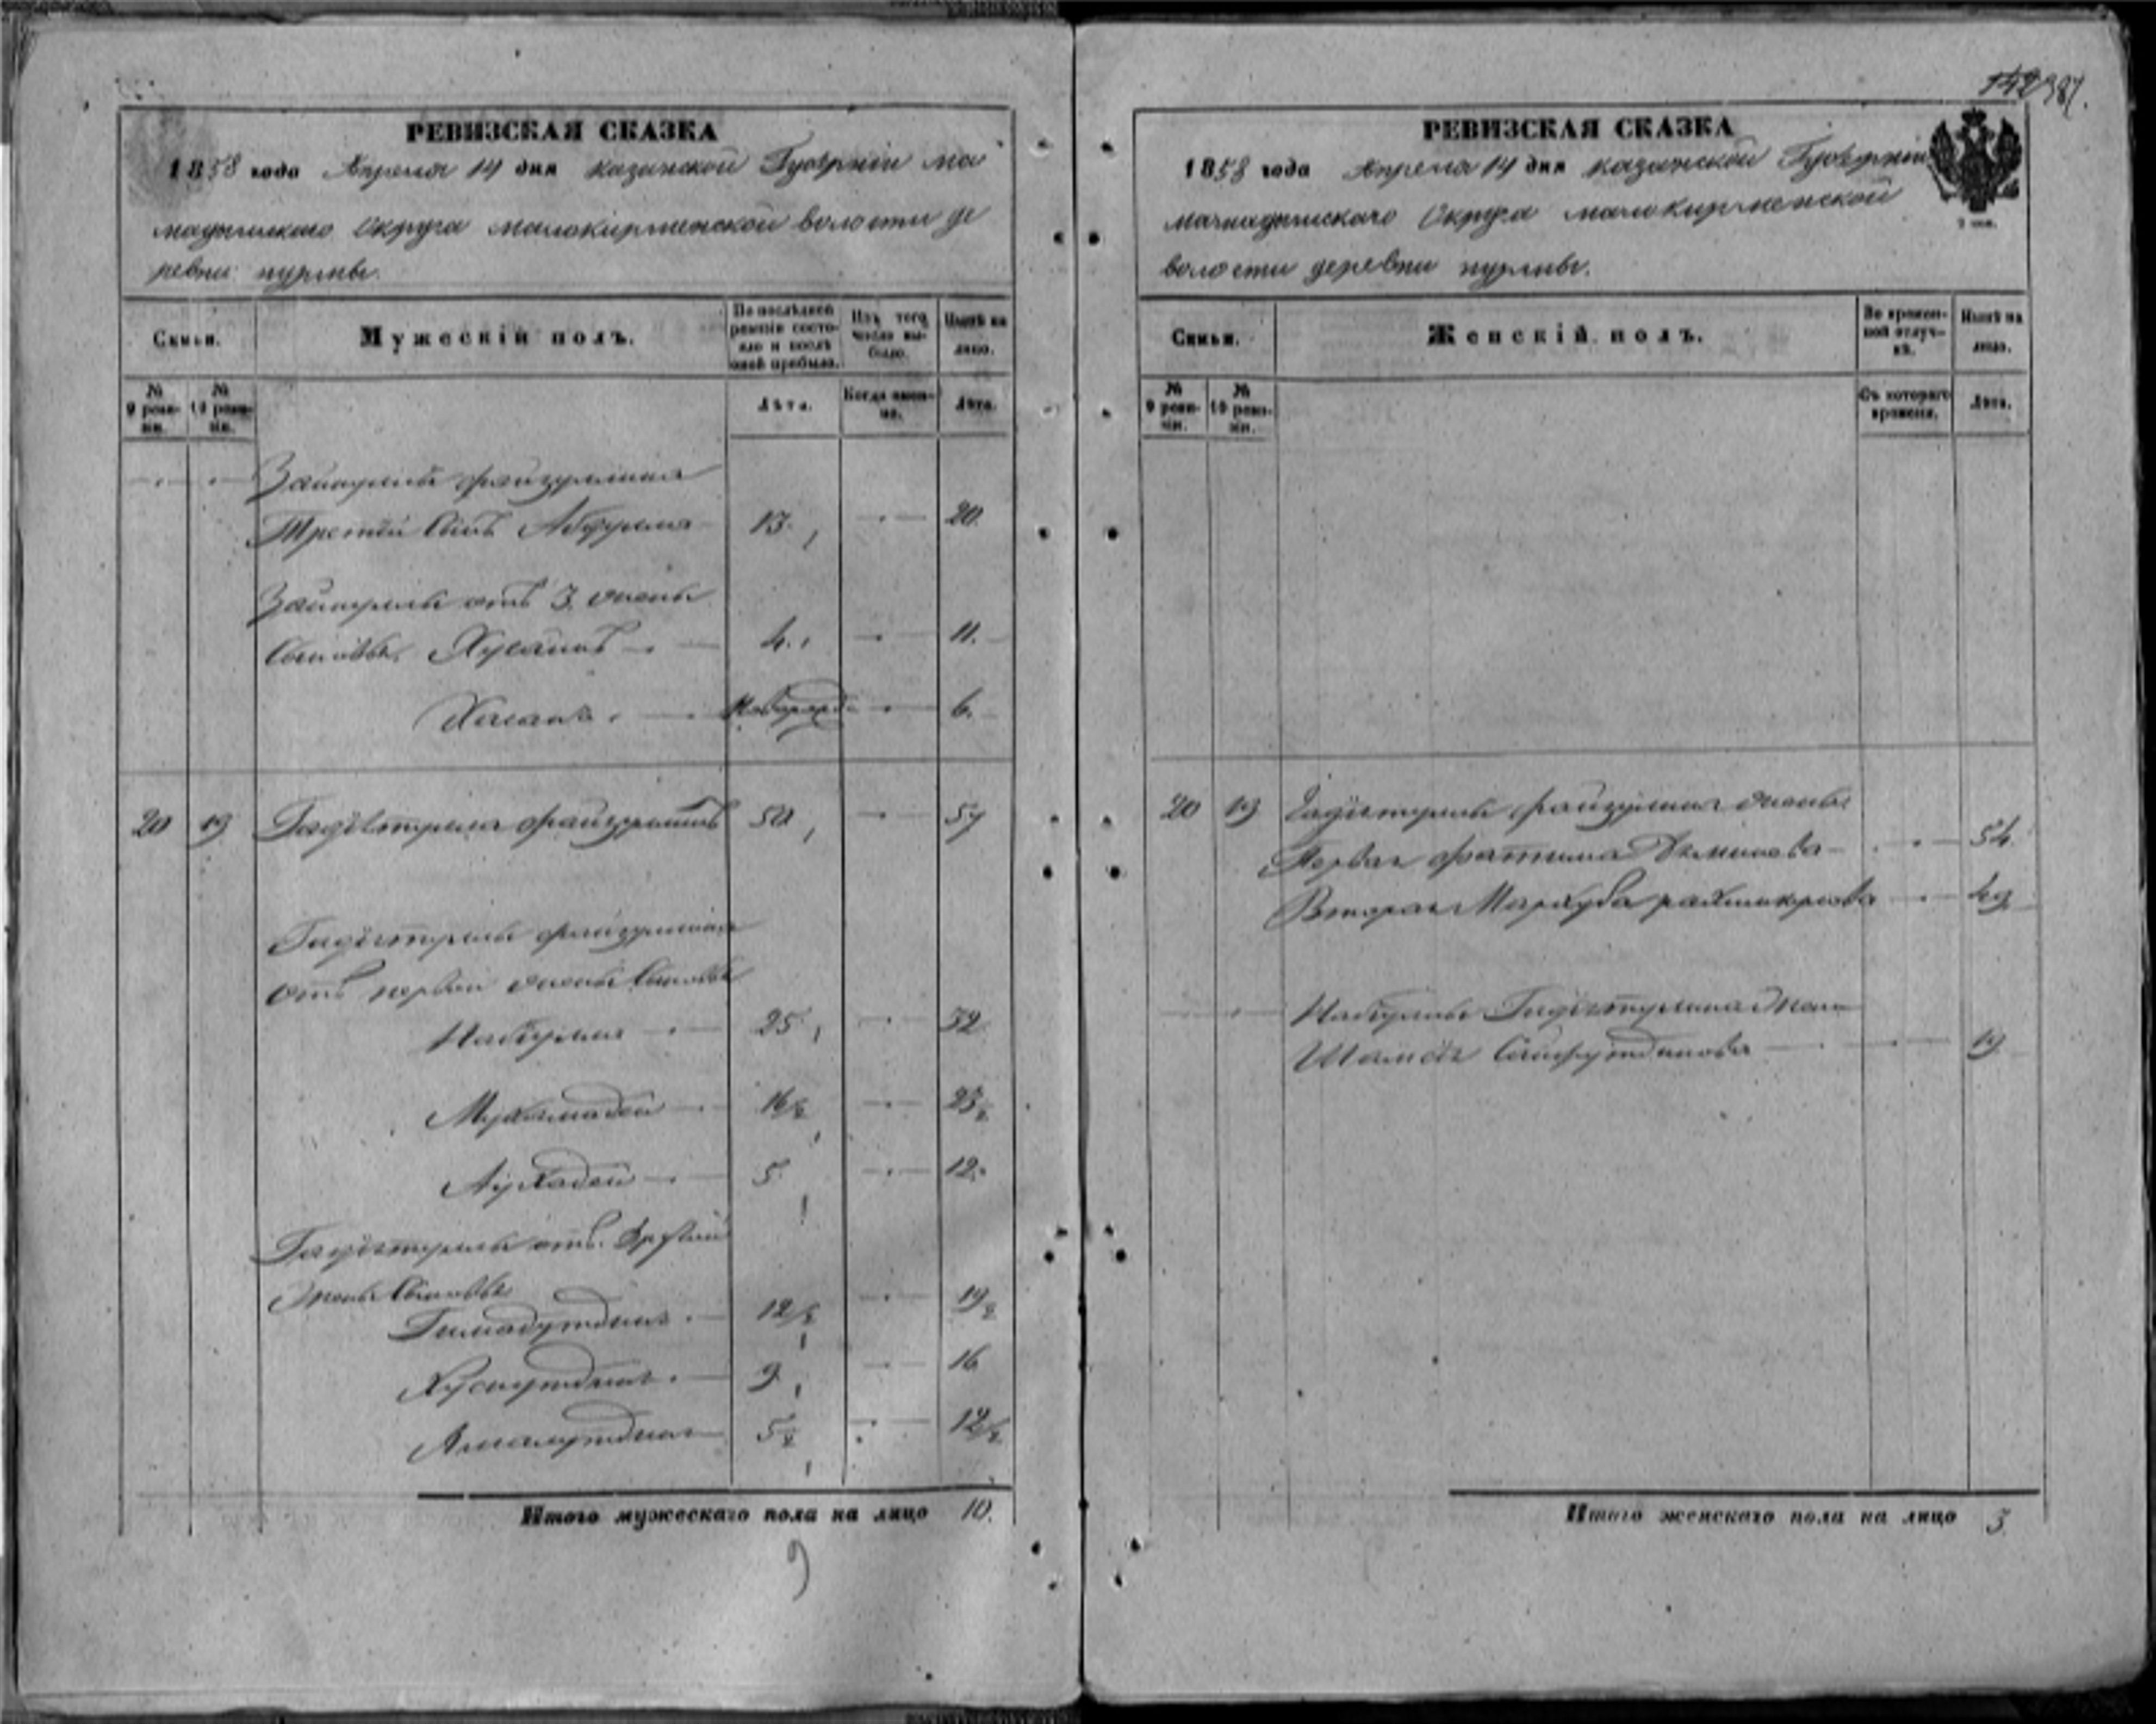 142 387.
РЕВИЗСКАЯ СКАЗКА
1858 года Апреля 14 дня казанской Губернии ма
мадышскаго Округа малокирменской волости де
ревни пурлны.
Семьи.
Мужескій полъ.
По послѣдней ревизіи состояло и послѣ оной прибыло.
Изъ того числа выбыло.
Нынѣ на лицо.
№ 9 ревизіи.
№ 10 ревизіи.
Лѣта.
Когда именно.
Лѣта.
Зайтулы файзуллина
Третій Сынъ Абдулла 13. 20.
Зайтулы отъ 3. жены
Сыновья, Хусаинъ 4. 11.
Хасанъ. Новорожд. 6.
20 19 файзуллинъ 50 57
файзуллина
отъ первой жены Сыновья
Набіулла 25 32
Мухамадей 16 1/2 23 1/2
Аухадей 5. 12.
отъ другой
жены Сыновья
Гимадутдинъ. 12 1/2 19 1/2
Хуснутдинъ. 9 16
Ямалутдинъ 5 1/2 12 1/2
Итого мужескаго пола на лицо 10.
9
РЕВИЗСКАЯ СКАЗКА
1858 года Апреля 14 дня казанской Губерніи
мамадышскаго Округа малокирменской
волости деревни пурлны.
Семьи.
Женскій полъ.
Во временной отлучкѣ.
Нынѣ на лицо.
№ 9 ревизіи.
№ 10 ревизіи.
Съ котораго времени.
Лѣта.
20 19 файзуллина жены
Первая Фатима 54.
Вторая Мархуба 49
Набіуллы жена
Шамсія Сайфутдинова 19
Итого женскаго пола на лицо 3.